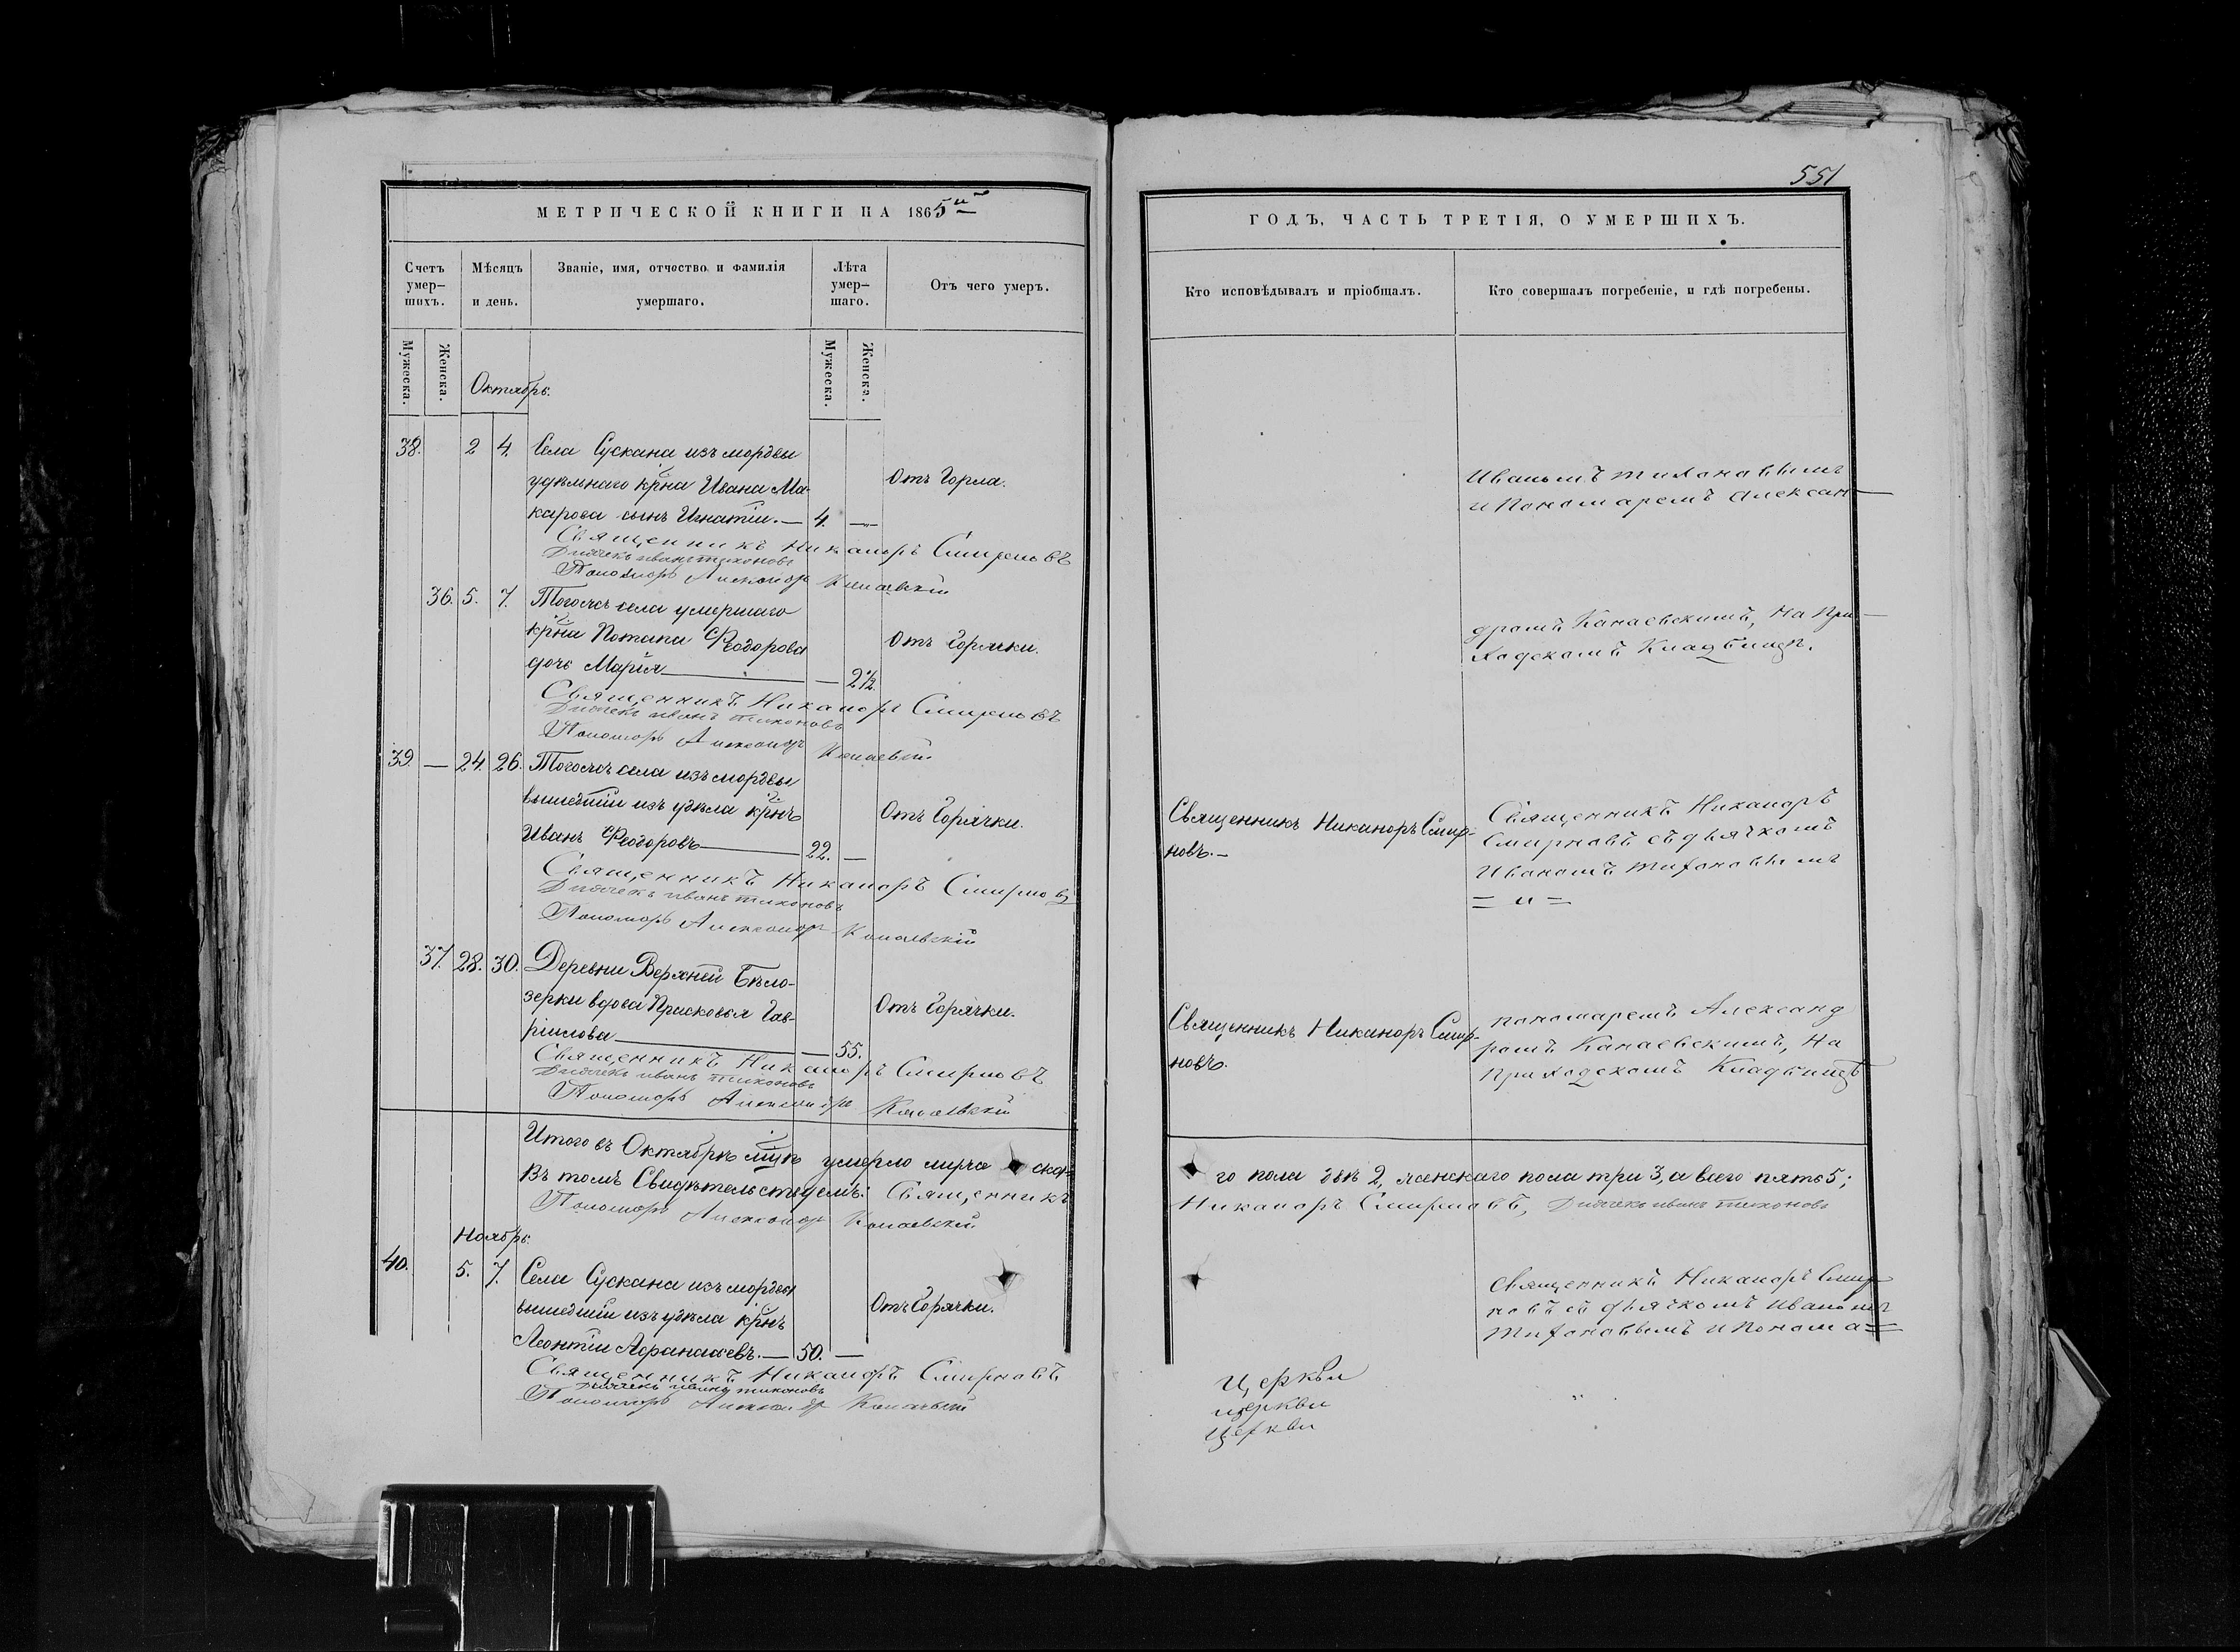 МЕТРИЧЕСКОЙ КНИГИ НА 1865й
Счетъ умер-шихъ.
Мѣсяцъ и день.
Званіе, имя, отчество и фамилія умершаго.
Лѣта умер-шаго.
Отъ чего умеръ.
Мужеска.
Женска.
Мужеска.
Женска.
Октябрь.
38. 2 4. Села Сускана изъ мордвы
удѣльнаго крна Ивана Ма-
карова сынъ Игнатій. — 4. —
Отъ Горла.
Священникъ Никаноръ Смирновъ
Дьячекъ иванъ тихоновъ
Пономарь Александр Канаевскій
36. 5. 7. Тогожъ села умершаго
крна Потапа Ѳеодорова
дочь Марія — — 2½.
Отъ Горячки.
Священникъ Никаноръ Смирновъ
Дьячекъ иванъ тихоновъ
Пономарь Александръ Канаевскій
39. — 24. 26. Тогожъ села изъ мордвы
вышедшій изъ удѣла крнъ
Иванъ Ѳеодоровъ — 22. —
Отъ Горячки.
Священникъ Никаноръ Смирновъ
Дьячекъ иванъ тихоновъ
Пономарь Александр Канаевскій
37. 28. 30. Деревни Верхней Бѣло-
зерки вдова Прасковья Гав-
ріилова — — 55.
Отъ Горячки.
Священникъ Никаноръ Смирновъ
Дьячекъ иванъ тихоновъ
Пономарь Александръ Канаевскій
Итого въ Октябрѣ мцѣ умерло мужескa-
Въ томъ Свидѣтельствуемъ: Священникъ
Пономарь Александр Канаевскій
Ноябрь.
40. 5. 7. Села Сускана изъ мордвы
вышедшій изъ удѣла крнъ
Леонтій Аѳанасьевъ. — 50. —
Отъ Горячки.
Священникъ Никаноръ Смирновъ
Дьячекъ иванъ тихоновъ
Пономарь Александр Канаевскій
551
ГОДЪ, ЧАСТЬ ТРЕТІЯ, О УМЕРШИХЪ.
Кто исповѣдывалъ и пріобщалъ.
Кто совершалъ погребеніе, и гдѣ погребены.
Иваномъ тихановымъ
и Пономаремъ Алексан-
дромъ Канаевскимъ, На При-
ходскомъ Кладбищѣ.
Священникъ Никаноръ Смир-
новъ. —
Священникъ Никаноръ
Смирновъ съ дьячкомъ
Иваномъ тихановымъ
= и =
Священникъ Никаноръ Смир-
новъ.
пономаремъ Александ
ромъ Канаевскимъ, На
приходскомъ Кладбищѣ
го пола два 2, женскаго пола три 3, а всего пять 5;
Никаноръ Смирновъ, Дьячекъ иванъ тихоновъ
Священникъ Никаноръ Смир
новъ съ дьячкомъ Иваномъ
тихановымъ и Понома=
Церкви
церкви
церкви